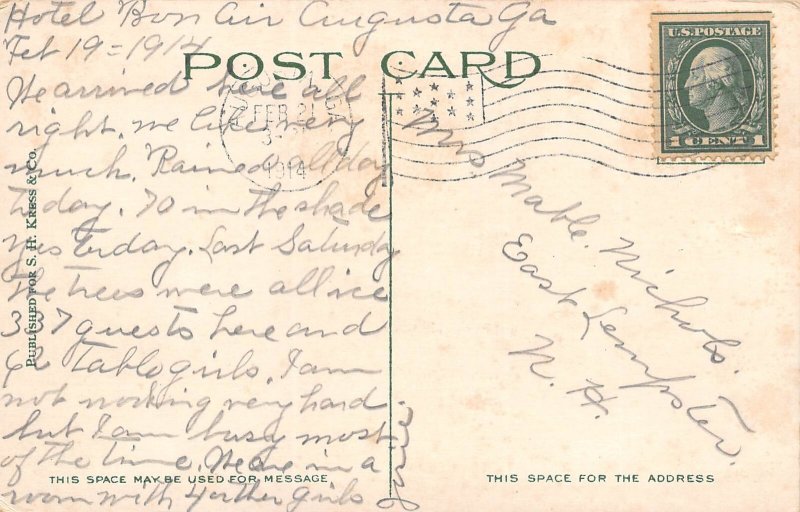 Hotel Bon Air Augusta Ga
Feb 19 = 1914
We arrived here all
right. we like very
much. Rained all day
today. 70 in the shade
yesterday. Last Saturday
the trees were all ice
337 guests here and
62 table girls. I am
not working very hard
but I am busy most
of the time. We are in a
room with 4 other girls
POST CARD
FEB 21
1914
U.S. POSTAGE
1 CENT 1
Mrs Mable. Nichols.
East Lempster.
N. H.
PUBLISHED FOR S. H. KRESS & CO.
THIS SPACE MAY BE USED FOR MESSAGE
THIS SPACE FOR THE ADDRESS